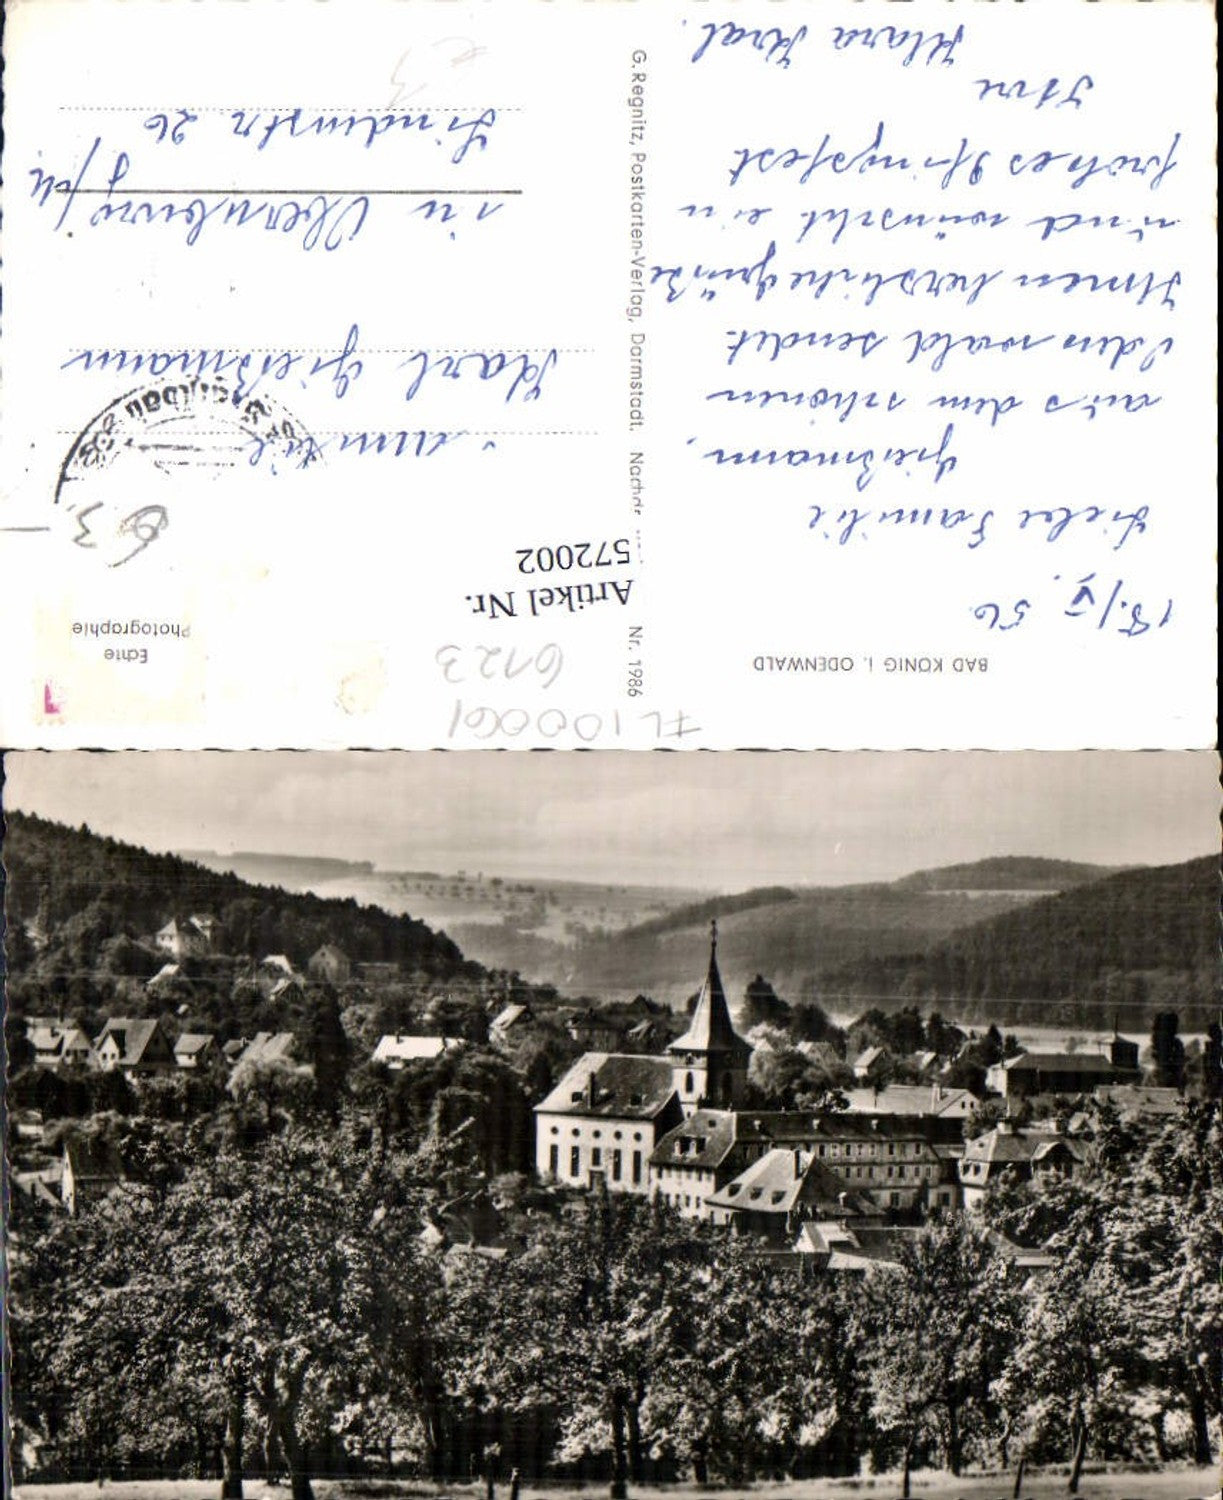 BAD KÖNIG i. ODENWALD
18./V. 56
Liebe Familie
Gießmann,
aus dem schönen
Odenwald sendet
Ihnen herzliche Grüße
und wünscht ein
frohes Pfingstfest
Ihre
Klara Kral.
G. Regnitz, Postkarten-Verlag, Darmstadt. Nachdr. Nr. 1986
FL100061
6123
Artikel Nr.
572002
Echte
Photographie
63
Familie
Karl Gießmann
in
Lindenstr. 26